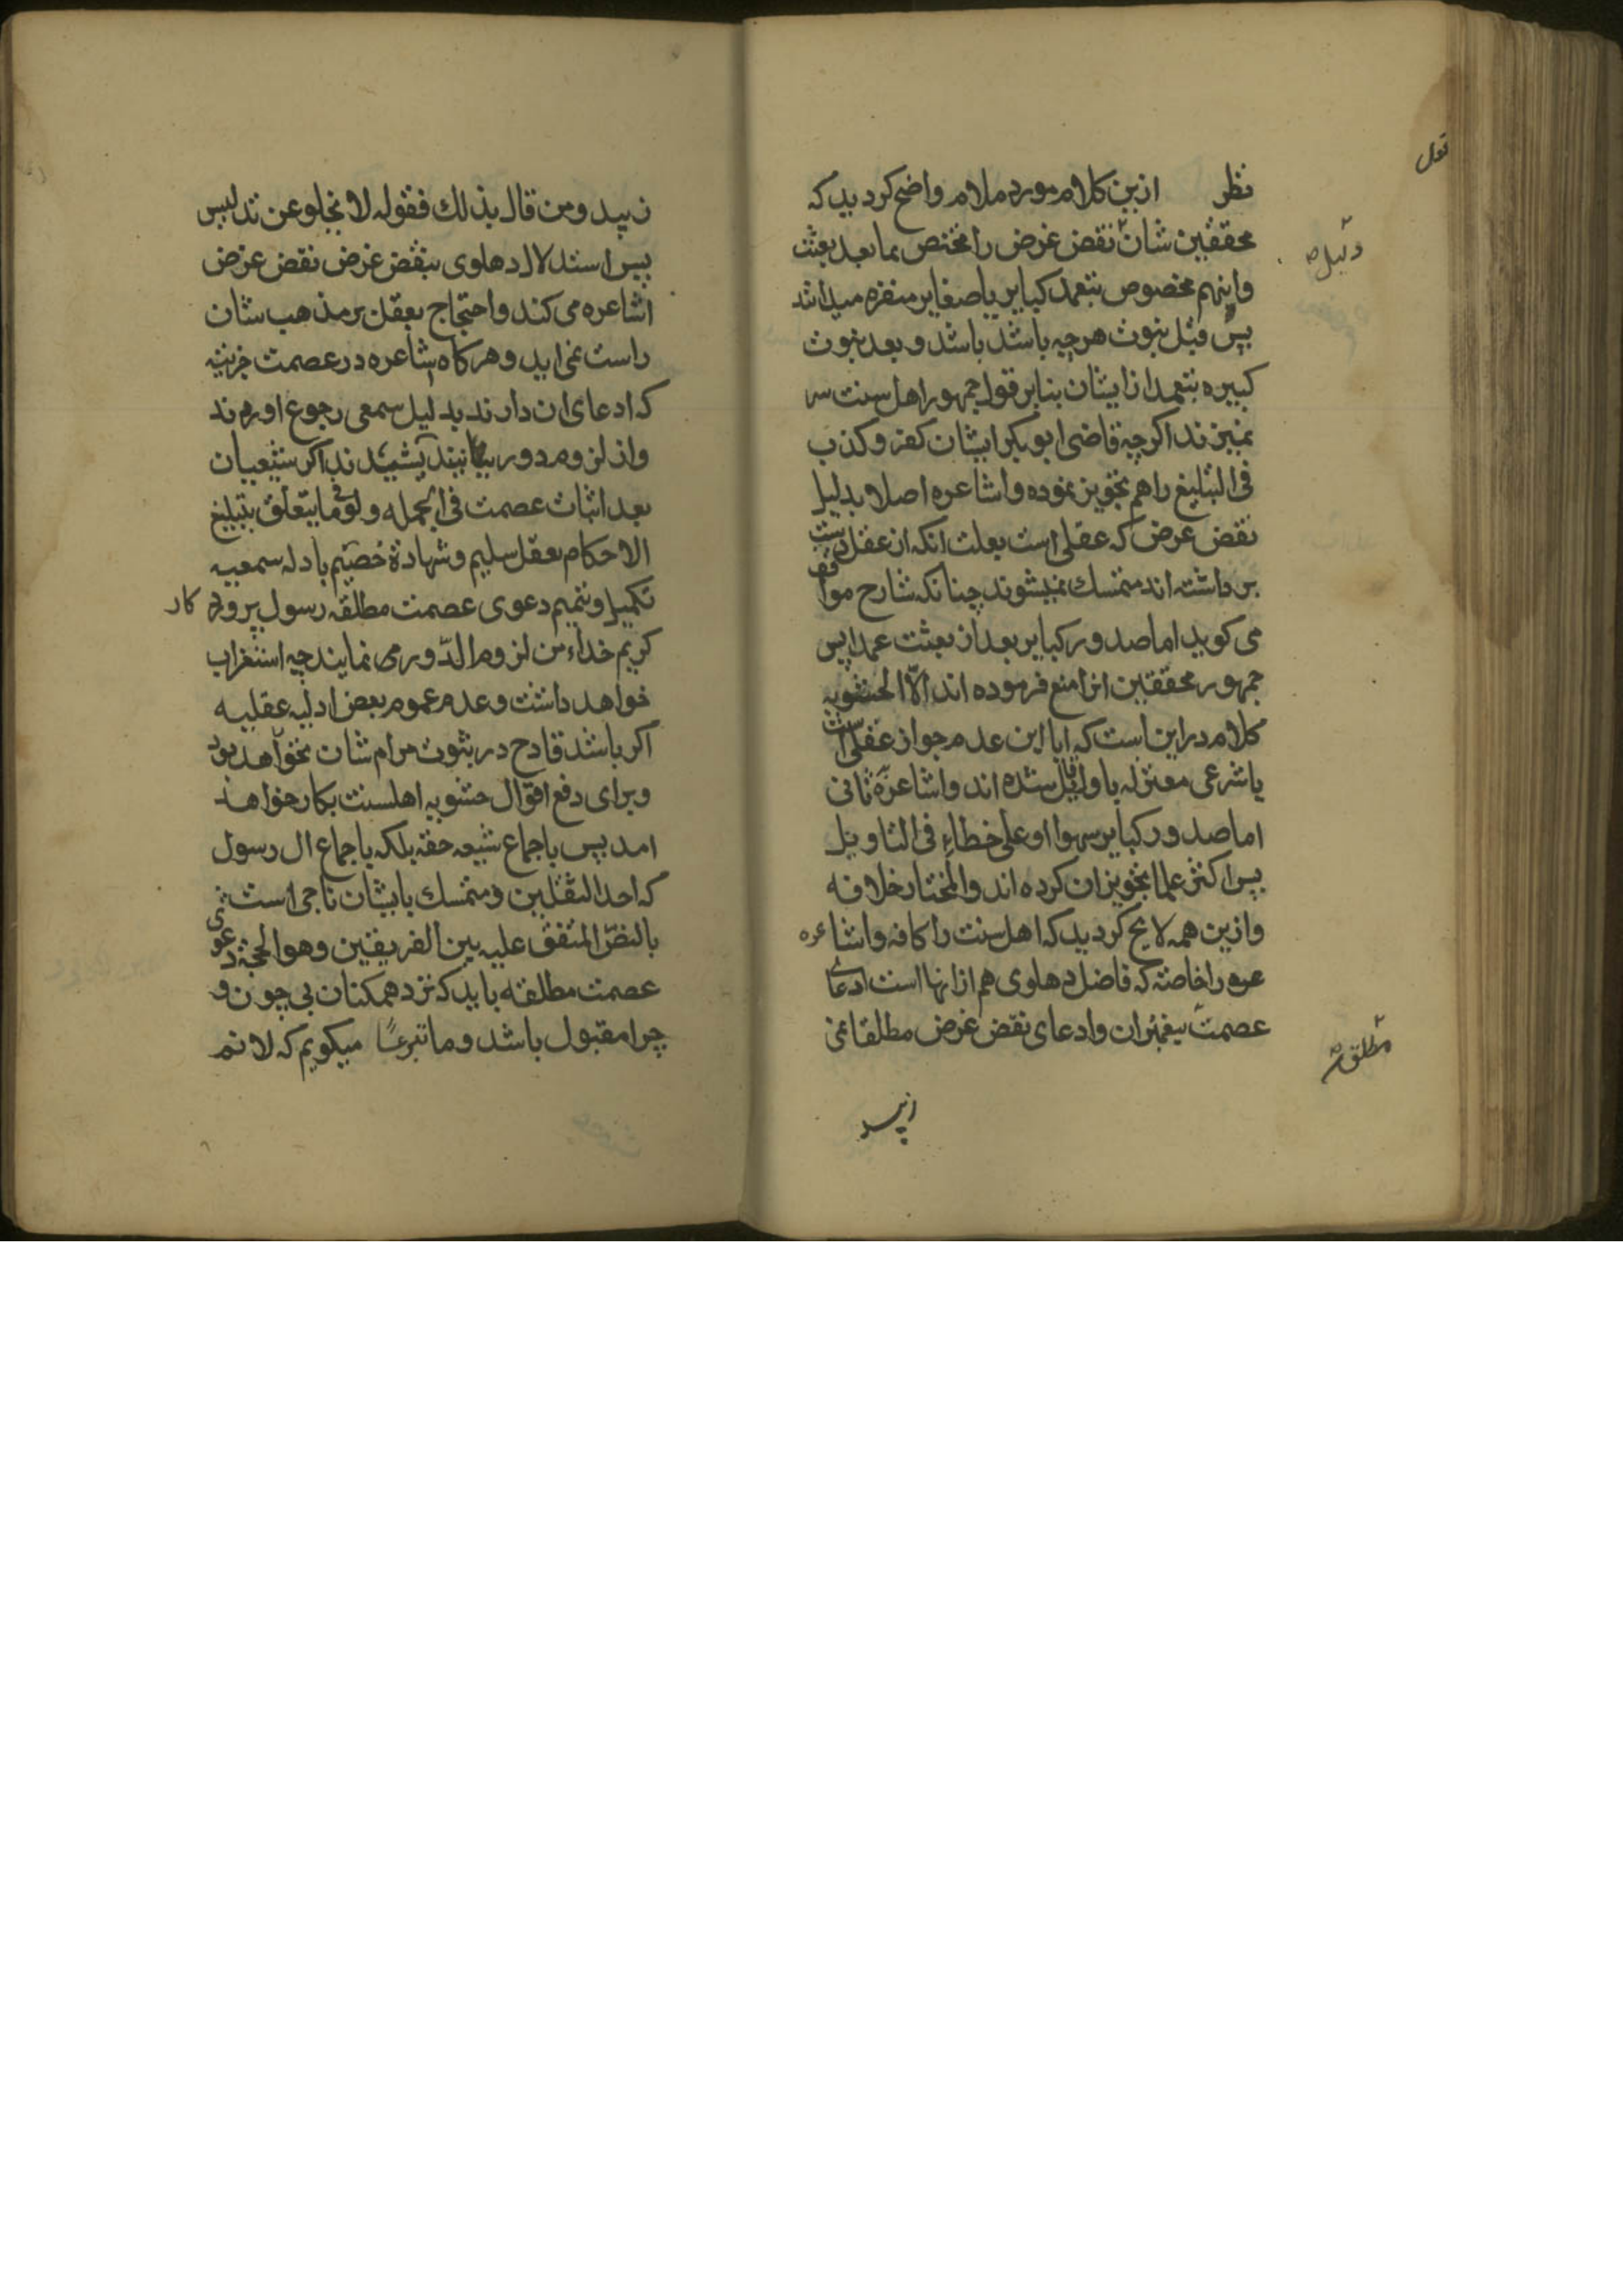 نظر ازین کلام مورد ملام واضح کردید که
محققین شان نقض غرض را مختص بما بعد بعثت
واینهم مخصوص بتعمد کبایر یا صغایر منفره میدانند
پس قبل نبوت هرچه باشد باشد و بعد نبوت
کبیره بتعمد از ایشان بنابر قول جمهور اهل سنت سر
نمیزند اکرچه قاضی ابو بکر ایشان کفر و کذب
فی التبلیغ را هم تجویز نموده و اشاعره اصلا بدلیل
نقض غرض که عقلی است بعلت انکه از عقل دست
برداشته اند متمسک نمیشوند چنانکه شارح مواقف
می کوید اما صدور کبایر بعد از بعثت عمدا پس
جمهور محققین انرا منع فرموده اند الّا الحشویه
کلام در این است که ایا این عدم جواز عقلی است
یا شرعی معتزله باول قایل شده اند و اشاعره ثانی
اما صدور کبایر سهوا او علی خطاء فی التاویل
پس اکثر علما تجویز ان کرده اند والمختار خلافه
وازین همه لایح کردید که اهل سنت را کافه و اشاعره
عره را خاصة که فاضل دهلوی هم از انها است ادعای
عصمت پیغمبران وادعای نقض غرض مطلقا نمی
دلیل
مطلق
قول
زیبد
زیبد ومن قال بذلک فقوله لا یخلو عن تدلیس
پس استدلال دهلوی بنقض غرض نقض غرض
اشاعره می کند و احتجاج بعقل بر مذهب شان
راست نمی اید و هرکاه اشاعره در عصمت جزئیه
که ادعای ان دارند بدلیل سمعی رجوع اورده ند
واز لزوم دور نیندیشیدند اکر شیعیان
بعد اثبات عصمت فی الجمله ولو فی ما یتعلق بتبلیغ
الاحکام بعقل سلیم و شهادة خصیم بادله سمعیه
تکمیل و تتمیم دعوی عصمت مطلقه رسول پرورد کار
کریم خداء من لزوم الدّور می نمایند چه استغراب
خواهد داشت و عدم عموم بعض ادلیه عقلیه
اکر باشد قادح در ثبوت مرام شان نخواهد بود
و برای دفع اقوال حشویه اهلسنت بکار خواهد
امد پس باجماع شیعه حقه بلکه باجماع ال رسول
که احد الثقلین و متمسک بایشان ناجی است
بالنصّ المتفق علیه بین الفریقین وهو الحجة دعوی
عصمت مطلقه باید که نزد همکنان بی چون و
چرا مقبول باشد و ما تبرعًا میکویم که لا نم